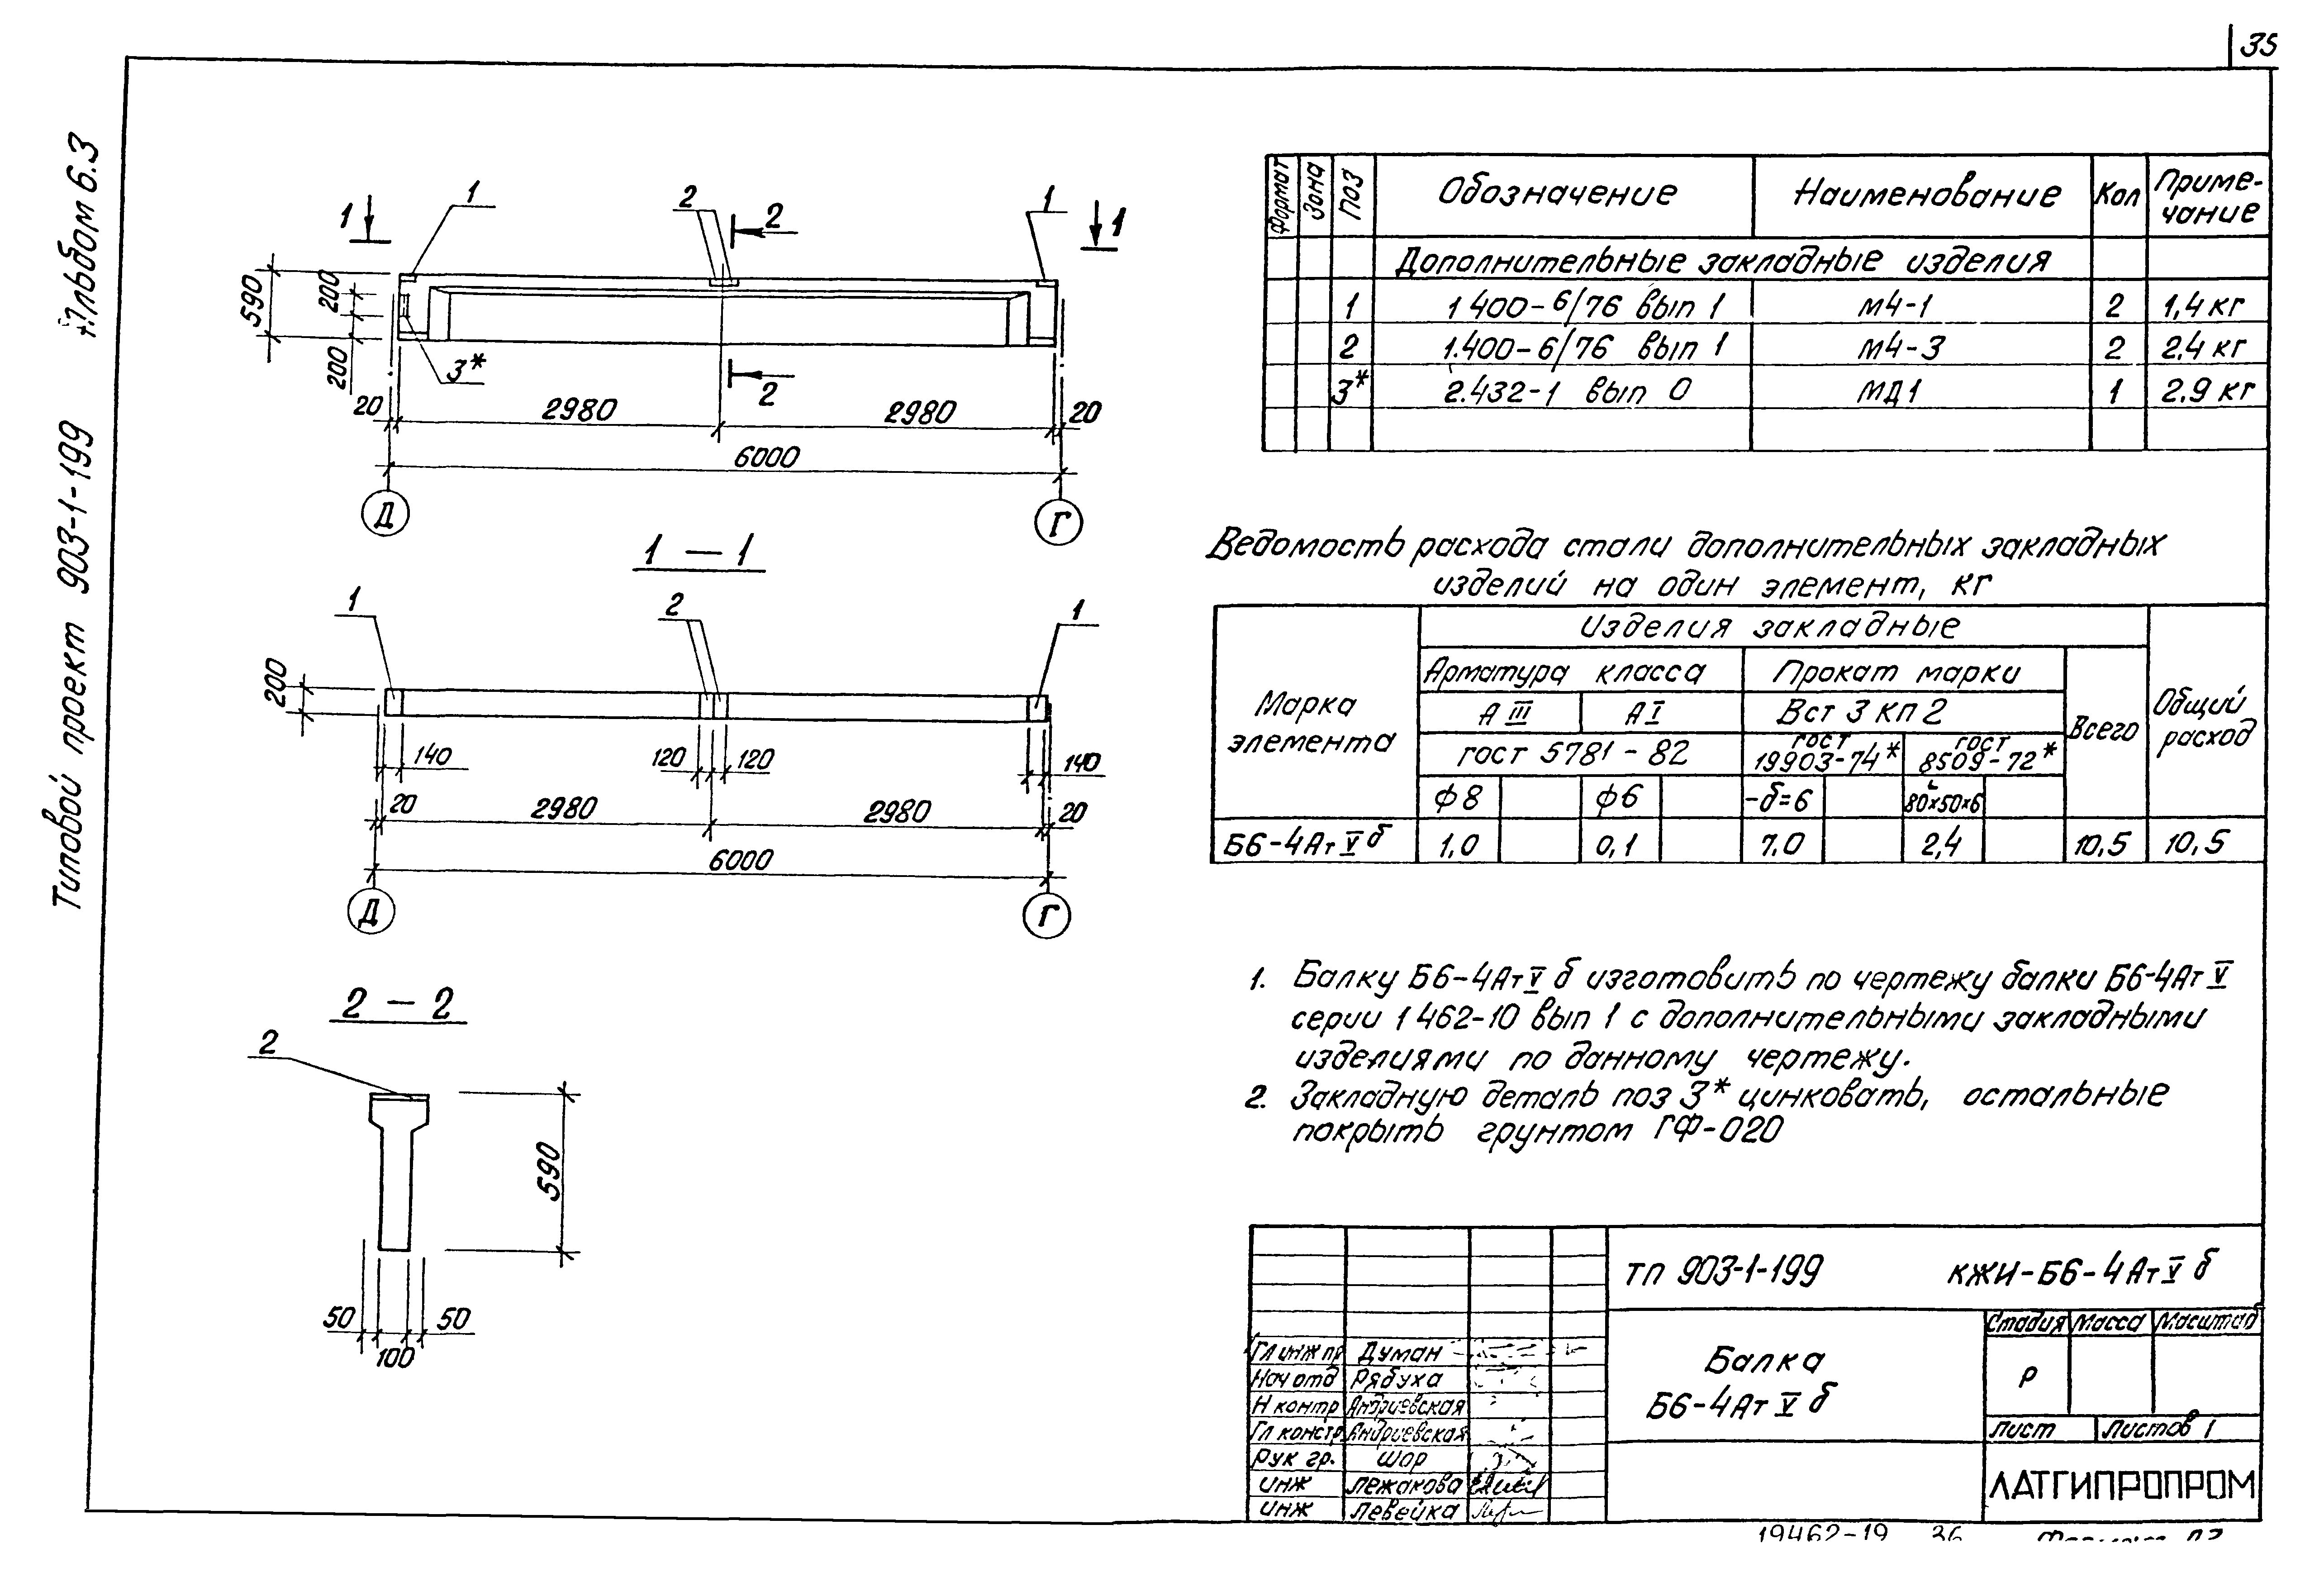 35
Альбом 6.3
Типовой проект 903-1-199
1
1
2
2
1
1
590
200
200
3*
2
20
2980
2980
20
6000
Д
Г
1 — 1
1
2
1
200
140
120
120
140
20
2980
2980
20
6000
Д
Г
2 — 2
2
590
50
100
50
Формат
Зона
Поз
Обозначение
Наименование
Кол
Приме-
чание
Дополнительные закладные изделия
1 1 400-6/76 вып 1 М4-1 2 1,4 кг
2 1.400-6/76 вып 1 М4-3 2 2.4 кг
3* 2.432-1 вып 0 МД1 1 2.9 кг
Ведомость расхода стали дополнительных закладных
изделий на один элемент, кг
Марка
элемента
Изделия закладные
Арматура класса
Прокат марки
А III
А I
Вст 3 кп 2
Всего
Общий
расход
гост 5781-82
гост
19903-74*
гост
8509-72*
ф8
ф6
-δ=6
∟
80×50×6
Б6-4Ат V б 1,0 0,1 7.0 2,4 10,5 10,5
1. Балку Б6-4Ат V б изготовить по чертежу балки Б6-4Ат V
серии 1 462-10 вып 1 с дополнительными закладными
изделиями по данному чертежу.
2. Закладную деталь поз 3* цинковать, остальные
покрыть грунтом ГФ-020
ТП 903-1-199 КЖИ-Б6-4Ат V б
Балка
Б6-4Ат V б
Стадия Масса Масштаб
Р
Лист Листов 1
ЛАТГИПРОПРОМ
Гл инж пр Думан
Нач отд Рябуха
Н контр Андриевская
Гл констр Андриевская
Рук гр. Шор
инж Лежакова
инж Левейка
19462-19 36